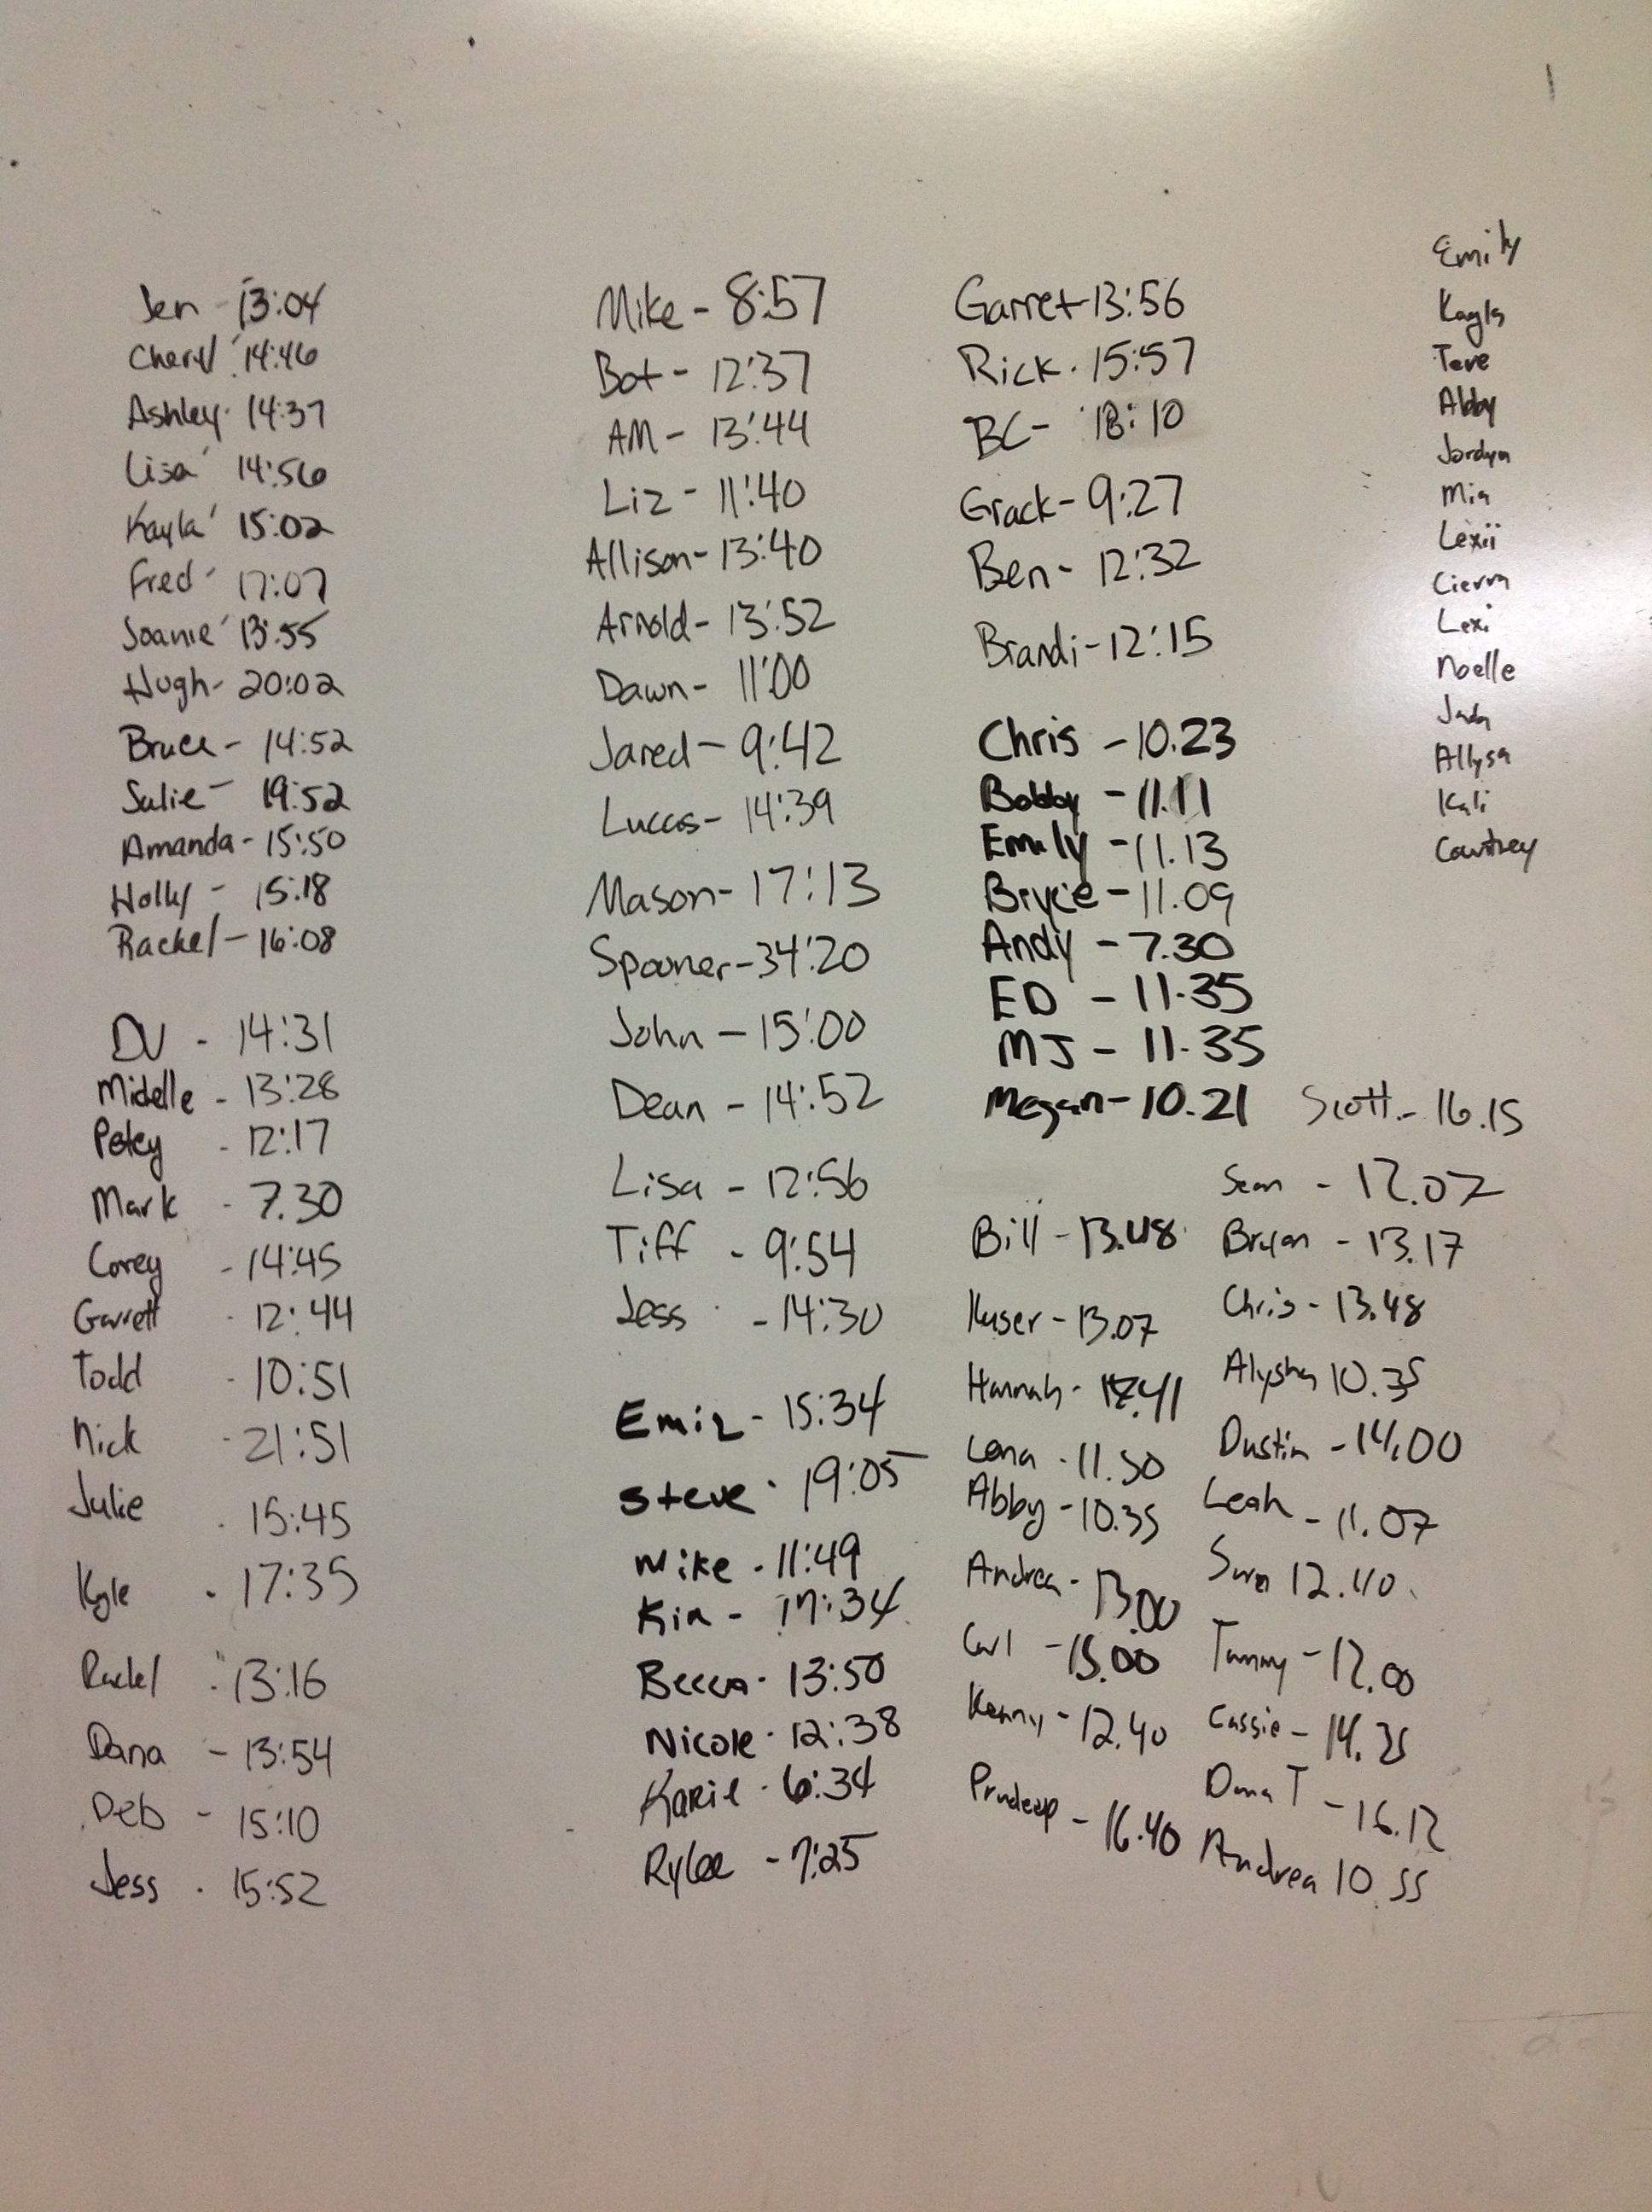 Jen - 13:04
Cheryl 14:46
Ashley - 14:37
Lisa 14:56
Kayla 15:02
Fred - 17:07
Joanie 13:55
Hugh - 20:02
Bruce - 14:52
Julie - 19:52
Amanda - 15:50
Holly - 15:18
Rachel - 16:08
DV - 14:31
Midelle - 13:28
Petey - 12:17
Mark - 7.30
Corey - 14:45
Garrett - 12:44
Todd - 10:51
Nick - 21:51
Julie - 15:45
Kyle - 17:35
Rachel - 13:16
Dana - 13:54
Deb - 15:10
Jess - 15:52
Mike - 8:57
Bot - 12:37
AM - 13:44
Liz - 11:40
Allison - 13:40
Arnold - 13:52
Dawn - 11:00
Jared - 9:42
Luccas - 14:39
Mason - 17:13
Spooner - 34:20
John - 15:00
Dean - 14:52
Lisa - 12:56
Tiff - 9:54
Jess - 14:30
Emiz - 15:34
Steve - 19:05
Mike - 11:49
Kin - 17:34
Becca - 13:50
Nicole - 12:38
Karie - 6:34
Rylee - 7:25
Garret - 13:56
Rick - 15:57
BC - 18:10
Grack - 9:27
Ben - 12:32
Brandi - 12:15
Chris - 10.23
Bobby - 11.11
Emily - 11.13
Bryce - 11.09
Andy - 7.30
ED - 11.35
MJ - 11.35
Megan - 10.21
Bill - 13.48
Kuser - 13.07
Hannah -
Lana - 11.50
Abby - 10.35
Andrea - 13.00
Carl - 15.00
Kenny - 12.40
Pradeep - 16.40
Scott - 16.15
Sean - 12.07
Bryan - 13.17
Chris - 13.48
Alysha 10.35
Dustin - 14.00
Leah - 11.07
12.40
Tammy - 12.00
Cassie - 14.25
Dana T - 16.12
Andrea 10.55
Emily
Kayla
Teve
Abby
Jordyn
Mia
Lexii
Cierra
Lexi
Noelle
Jada
Allysa
Kali
Courtney